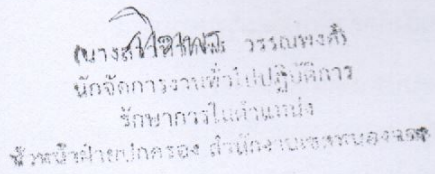 (นางส วรรณพงค์)
นักจัดการงานทั่วไปปฏิบัติการ
รักษาการในตำแหน่ง
หัวหน้าฝ่ายปกครอง สำนักงานเขตหนองจอก